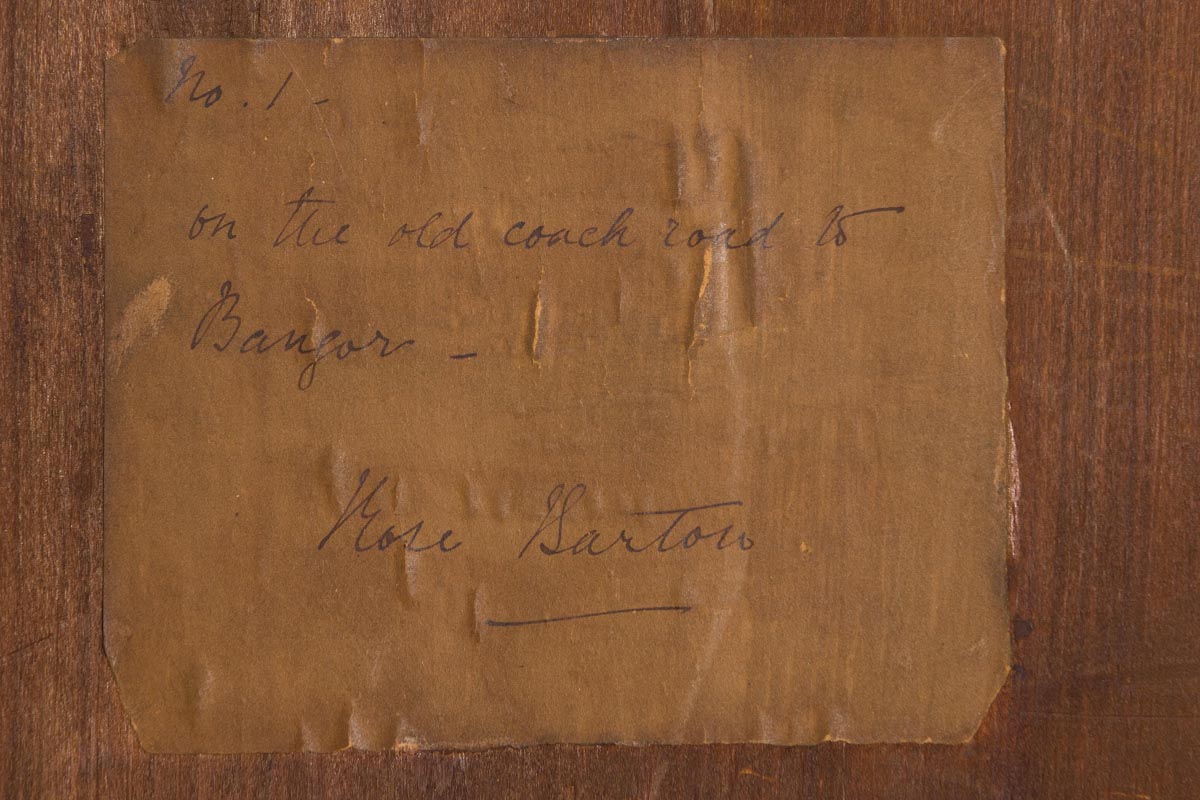 No. 1 -
on the old coach road to
Bangor -
Rose Barton